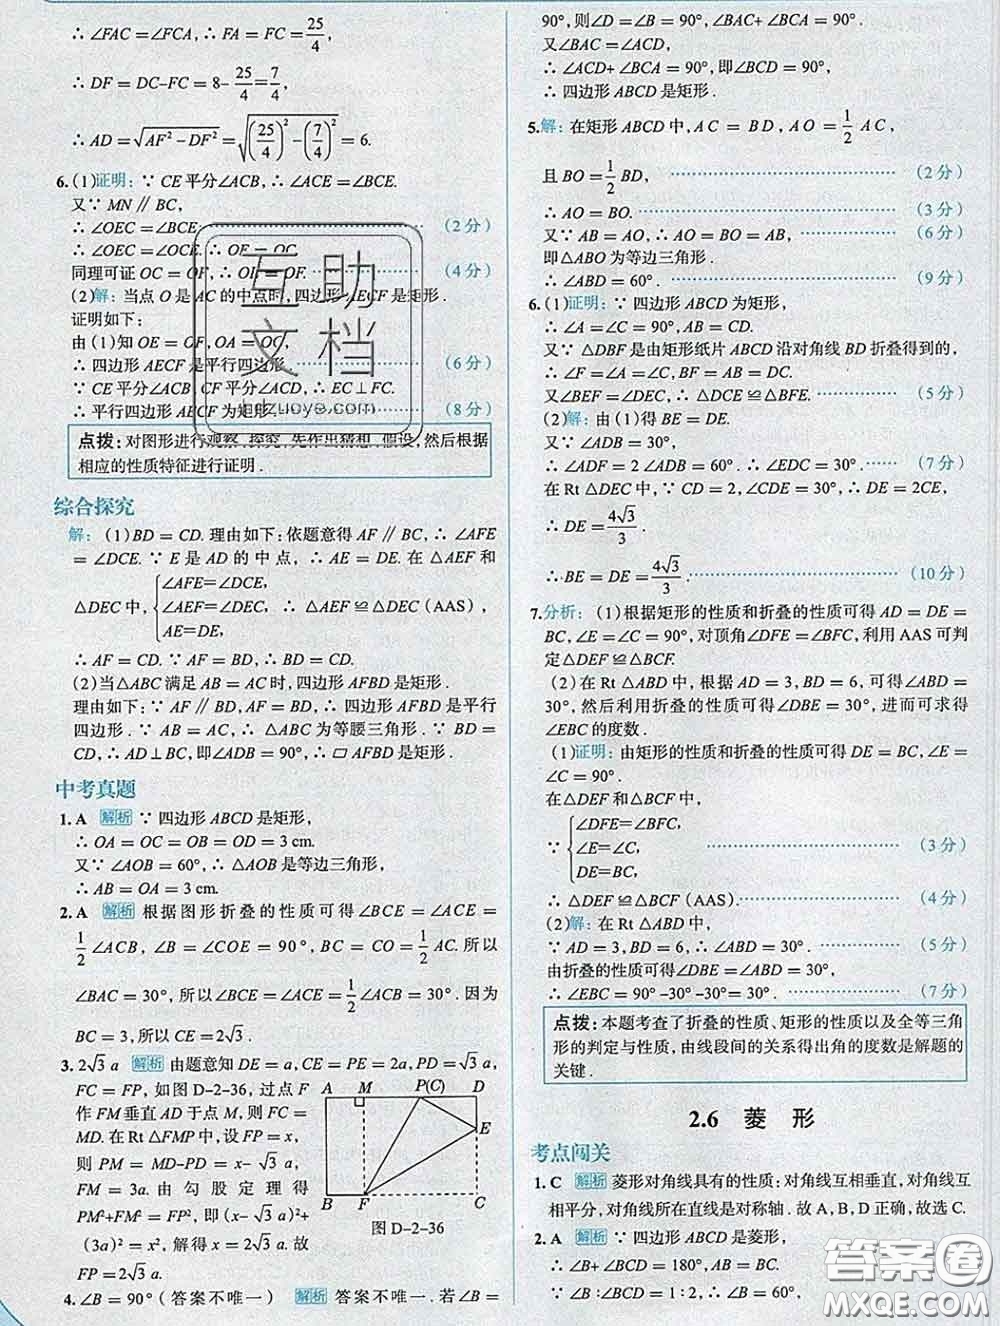 ∴ ∠FAC =∠FCA, ∴ FA = FC =25/4,
∴ DF = DC-FC = 8-25/4=7/4,
∴ AD =√(AF²-DF²)=√((25/4)²-(7/4)²)= 6.
6. (1)证明: ∵ CE 平分∠ACB, ∴ ∠ACE =∠BCE.
又∵ MN ∥ BC,
∴ ∠OEC =∠BCE. (2分)
∴ ∠OEC =∠OCE. ∴ OE = OC.
同理可证 OC = OF, ∴ OE = OF. (4分)
(2)解: 当点 O 是 AC 的中点时, 四边形 AECF 是矩形.
证明如下:
由 (1)知 OE = OF, OA = OC,
∴ 四边形 AECF 是平行四边形. (6分)
∵ CE 平分∠ACB, CF 平分∠ACD, ∴ EC⊥FC.
∴ 平行四边形 AECF 为矩形. (8分)
点拨: 对图形进行观察、探究, 先作出猜想、假设, 然后根据
相应的性质特征进行证明.
综合探究
解: (1)BD = CD. 理由如下: 依题意得 AF ∥ BC, ∴ ∠AFE
=∠DCE. ∵ E 是 AD 的中点, ∴ AE = DE. 在 △AEF 和
△DEC 中, {∠AFE=∠DCE, ∠AEF=∠DEC, AE=DE, ∴ △AEF≌△DEC (AAS),
∴ AF = CD. ∵ AF = BD, ∴ BD = CD.
(2)当△ABC 满足 AB = AC 时, 四边形 AFBD 是矩形.
理由如下: ∵ AF ∥ BD, AF = BD, ∴ 四边形 AFBD 是平行
四边形. ∵ AB = AC, ∴ △ABC 为等腰三角形. ∵ BD =
CD, ∴ AD⊥BC, 即∠ADB = 90°, ∴ ▱ AFBD 是矩形.
中考真题
1. A 解析 ∵ 四边形 ABCD 是矩形,
∴ OA = OC = OB = OD = 3 cm.
又∵ ∠AOB = 60°, ∴ △AOB 是等边三角形,
∴ AB = OA = 3 cm.
2. A 解析 根据图形折叠的性质可得∠BCE =∠ACE =
1/2 ∠ACB, ∠B = ∠COE = 90°, BC = CO=1/2 AC. 所以
∠BAC = 30°, 所以∠BCE =∠ACE =1/2∠ACB = 30°. 因为
BC = 3, 所以 CE = 2√3.
3. 2√3 a 解析 由题意知 DE = a, CE = PE = 2a, PD=√3 a,
FC = FP, 如图 D-2-36, 过点 F
作 FM 垂直 AD 于点 M, 则 FC =
MD. 在 Rt △FMP 中, 设 FP = x,
则 PM = MD-PD = x-√3 a,
FM = 3a. 由 勾 股 定 理 得
PM²+FM² = FP², 即 (x-√3 a)²+
(3a)² = x², 解得 x = 2√3 a. 故
FP = 2√3 a.
A M P(C) D
E
B F C
图 D-2-36
4. ∠B = 90° (答案不唯一) 解析 答案不唯一. 若∠B =
90°, 则∠D = ∠B = 90°, ∠BAC+ ∠BCA = 90°.
又∠BAC =∠ACD,
∴ ∠ACD+ ∠BCA = 90°, 即∠BCD = 90°,
∴ 四边形 ABCD 是矩形.
5.解: 在矩形 ABCD 中, AC = BD, AO =1/2 AC,
且 BO=1/2 BD, (2分)
∴ AO = BO. (3分)
又∵ AB = AO, ∴ AO = BO = AB, (6分)
即△ABO 为等边三角形.
∴ ∠ABD = 60°. (9分)
6. (1)证明: ∵ 四边形 ABCD 为矩形,
∴ ∠A =∠C = 90°, AB = CD.
又∵ △DBF 是由矩形纸片 ABCD 沿对角线 BD 折叠得到的,
∴ ∠F =∠A =∠C, BF = AB = DC.
又∠BEF =∠DEC, ∴ △DCE ≌△BFE. (5分)
(2)解: 由 (1)得 BE = DE.
又∵ ∠ADB = 30°,
∴ ∠ADF = 2 ∠ADB = 60°. ∴ ∠EDC = 30°. (7分)
在 Rt △DEC 中, ∵ CD = 2, ∠CDE = 30°, ∴ DE = 2CE,
∴ DE =4√3/3.
∴ BE = DE =4√3/3. (10分)
7.分析: (1)根据矩形的性质和折叠的性质可得 AD = DE =
BC, ∠E = ∠C = 90°, 对顶角∠DFE =∠BFC, 利用 AAS 可判
定△DEF ≌△BCF.
(2)在 Rt △ABD 中, 根据 AD = 3, BD = 6, 可得∠ABD =
30°, 然后利用折叠的性质可得∠DBE = 30°, 进而可求得
∠EBC 的度数.
(1)证明: 由矩形的性质和折叠的性质可得 DE = BC, ∠E =
∠C = 90°.
在△DEF 和△BCF 中,
∵ {∠DFE=∠BFC, ∠E=∠C, DE=BC, (3分)
∴ △DEF ≌△BCF (AAS). (4分)
(2)解: 在 Rt △ABD 中,
∵ AD = 3, BD = 6, ∴ ∠ABD = 30°. (5分)
由折叠的性质可得∠DBE =∠ABD = 30°,
∴ ∠EBC = 90° -30° -30°= 30°. (7分)
点拨: 本题考查了折叠的性质、矩形的性质以及全等三角
形的判定与性质, 由线段间的关系得出角的度数是解题的
关键.
2.6 菱 形
考点闯关
1. C 解析 菱形对角线具有的性质: 对角线互相垂直, 对角线互
相平分, 对角线所在直线是对称轴. 故 A, B, D 正确, 故选 C.
2. A 解析 ∵ 四边形 ABCD 是菱形,
∴ ∠B+ ∠BCD = 180°, AB = BC.
∵ ∠B : ∠BCD = 1 : 2, ∴ ∠B = 60°,
互助
文档
答案卷
MXQE.COM